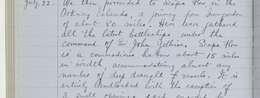 July 22. We then proceeded to Scapa Flow in the
Orkney Islands, a journey from Invergordon
of about 80 miles. Here were gathered
all the latest battleships under the
command of Sir John Jellicoe. Scapa Flow
is a commodious harbour about 15 miles
in width, accommodating almost any
number of deep draught vessels. It is
entirely landlocked with the exception of